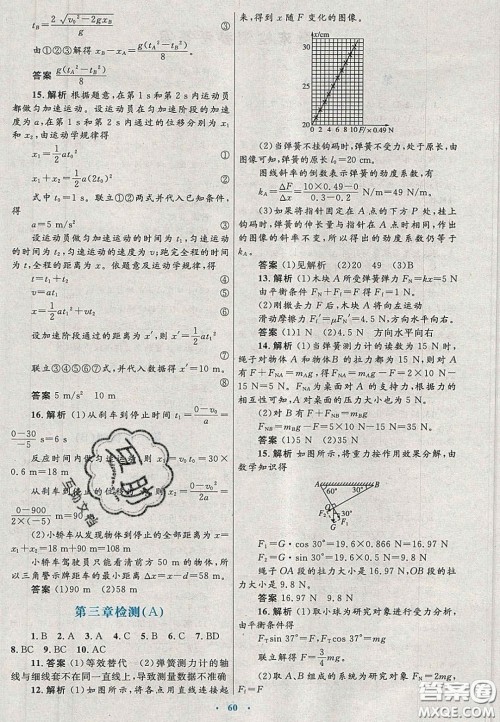 t_B=2√(v_0²-2gx_B)/g ⑤
由①②③解得 x_B-x_A=g(t_A²-t_B²)/8
答案 g(t_A²-t_B²)/8
15. 解析 根据题意,在第 1 s 和第 2 s 内运动员
都做匀加速运动。设运动员在匀加速阶段的加速
度为 a,在第 1 s 和第 2 s 内通过的位移分别为 x_1
和 x_2,由运动学规律得
x_1=1/2 at_0² ①
x_1+x_2=1/2 a(2t_0)² ②
式中 t_0=1 s。联立①②两式并代入已知条件,得
a=5 m/s² ③
设运动员做匀加速运动的时间为 t_1,匀速运动的
时间为 t_2,匀速运动的速度为 v;跑完全程的时间为
t,全程的距离为 x。依题意及运动学规律,得
t=t_1+t_2 ④
v=at_1 ⑤
x=1/2 at_1²+vt_2 ⑥
设加速阶段通过的距离为 x′,则 x′=1/2 at_1² ⑦
联立③④⑤⑥⑦式,并代入数据得 x′=10 m
⑧
答案 5 m/s² 10 m
16. 解析 (1)从刹车到停止时间 t_1=(0-v_0)/a=
(0-30)/-5 s=6 s
反应时间内做匀速运动,则 x_1=v_0t=30×
0.6 m=18 m
从刹车到停止的位移为 x_2,则 x_2=(0-v_0²)/2a=
(0-900)/(2×(-5)) m=90 m
(2)小轿车从发现物体到停止的全部距离为 x=
x_1+x_2=18 m+90 m=108 m
小轿车驾驶员只能看清前方 50 m 的物体,所
以三角警示牌距车的最小距离 Δx=x-d=58 m。
答案 (1)90 m (2)58 m
第三章检测(A)
1. B 2. A 3. A 4. C 5. B 6. C 7. BD
8. BC 9. BC 10. AC
11. 答案 (1)等效替代 (2)弹簧测力计的轴
线与细线套不在同一直线上,导致测量数据不准确
12. 解析 (1)如图所示,将各点用直线连接起
来,得到 x 随 F 变化的图像。
x/cm
30
28
26
24
22
20
0 2 4 6 8 10 F/×0.49 N
(2)当弹簧不挂钩码时,弹簧不受力,处于原长,由
图像可知,弹簧的原长 l_0=20 cm。
图线斜率的倒数表示弹簧的劲度系数,
k_A=ΔF/Δx=(10×0.49-0)/(0.3-0.2) N/m=49 N/m。
(3)如果将指针固定在 A 点的下方 P 处,挂上
钩码时,弹簧的伸长量与指针在 A 点时相同,作出
的图像的斜率不变,所以得出的劲度系数仍等于
k_A。
答案 (1)见解析 (2)20 49 (3)B
13. 解析 (1)木块 A 所受弹簧弹力 F_N=kx=5 N
由平衡条件 F_N+F_1=F 得 F_1=1 N
(2)刚撤去力 F 后,木块 A 将向左运动
滑动摩擦力 F_f′=μF_N′=4.5 N,方向水平向右。
答案 (1)1 N (2)4.5 N 方向水平向右
14. 解析 (1)当弹簧测力计的读数为 15 N 时,
绳子对物体 A 和物体 B 的拉力都为 15 N,则对 A
有 F+F_NA=m_Ag,得 F_NA=m_Ag-F=2×10 N-
15 N=5 N。F_NA 为桌面对 A 的支持力,与 A 对桌
面的压力是一对作用力与反作用力,根据二力的相
互性可知,A 对桌面的压力大小为 5 N。
(2)对 B 有 F+F_NB=m_Bg
F_NB=m_Bg-F=5×10 N-15 N=35 N
答案 (1)5 N (2)35 N
15. 解析 如图所示,将重力按作用效果分解,由
数学知识得
A B
60° 30°
O
F_2 F_1
G
F_1=G·cos 30°=19.6×0.866 N≈16.97 N
F_2=G·sin 30°=19.6×0.5 N=9.8 N
绳子 OA 段的拉力大小是 16.97 N,OB 段的拉
力大小是 9.8 N。
答案 16.97 N 9.8 N
16. 解析 (1)取小球为研究对象进行受力分析,
由平衡条件得
F_T sin 37°=F
F_T cos 37°=mg
联立解得 F=3/4 mg
(2)以小球和木块组成的系统为研究对象 ,
F_f=F=
60
互助
互动文档
答案
MXQE.COM